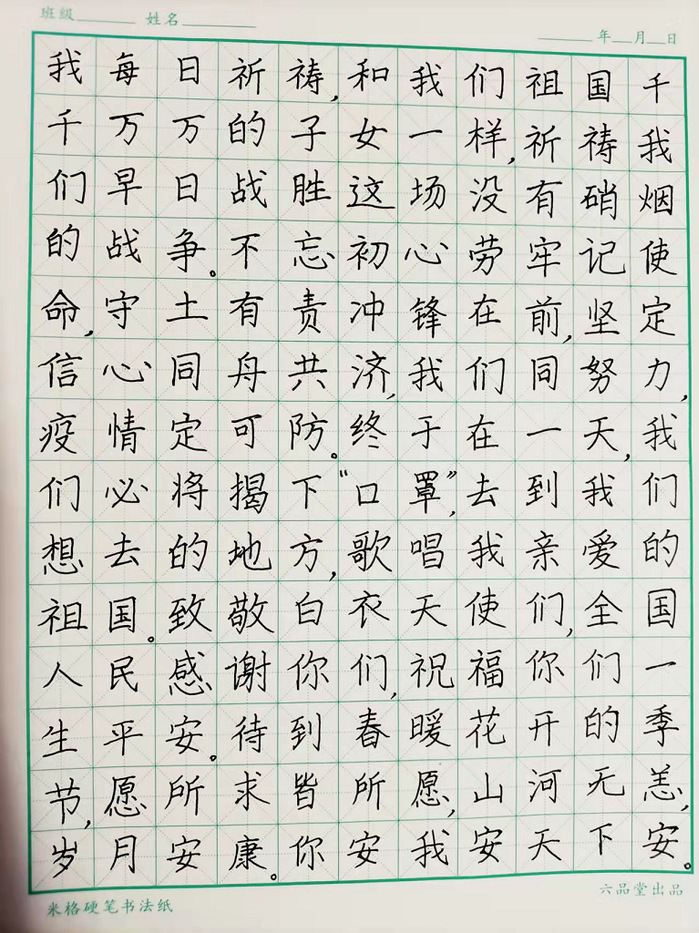 班级 姓名
年 月 日
我每日祈祷,和我们祖国千
千万万的子女一样,祈祷我
们早日战胜这场没有硝烟
的战争。不忘初心劳牢记使
命,守土有责冲锋在前,坚定
信心同舟共济,我们同努力,
疫情定可防。终于在一天,我
们必将揭下“口罩”,去到我们
想去的地方,歌唱我亲爱的
祖国。致敬白衣天使们,全国
人民感谢你们,祝福你们一
生平安。待到春暖花开的季
节,愿所求皆所愿,山河无恙,
岁月安康。你安我安天下安。
米格硬笔书法纸 六品堂出品